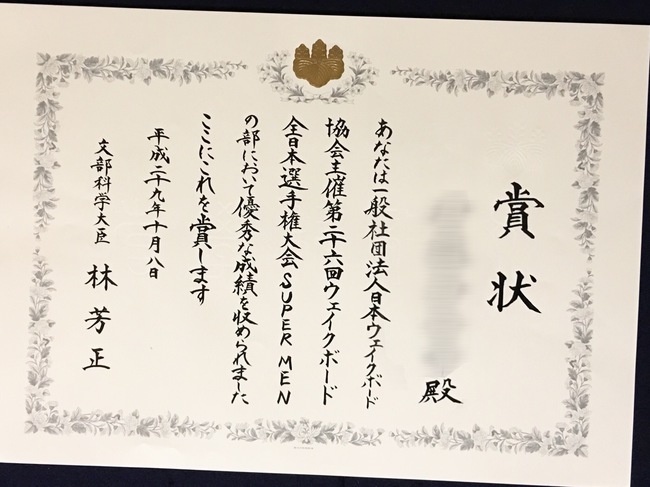 賞状
殿
あなたは一般社団法人日本ウェイクボード
協会主催第二十六回ウェイクボード
全日本選手権大会SUPER MEN
の部において優秀な成績を収められました
ここにこれを賞します
平成二十九年十月八日
文部科学大臣 林芳正